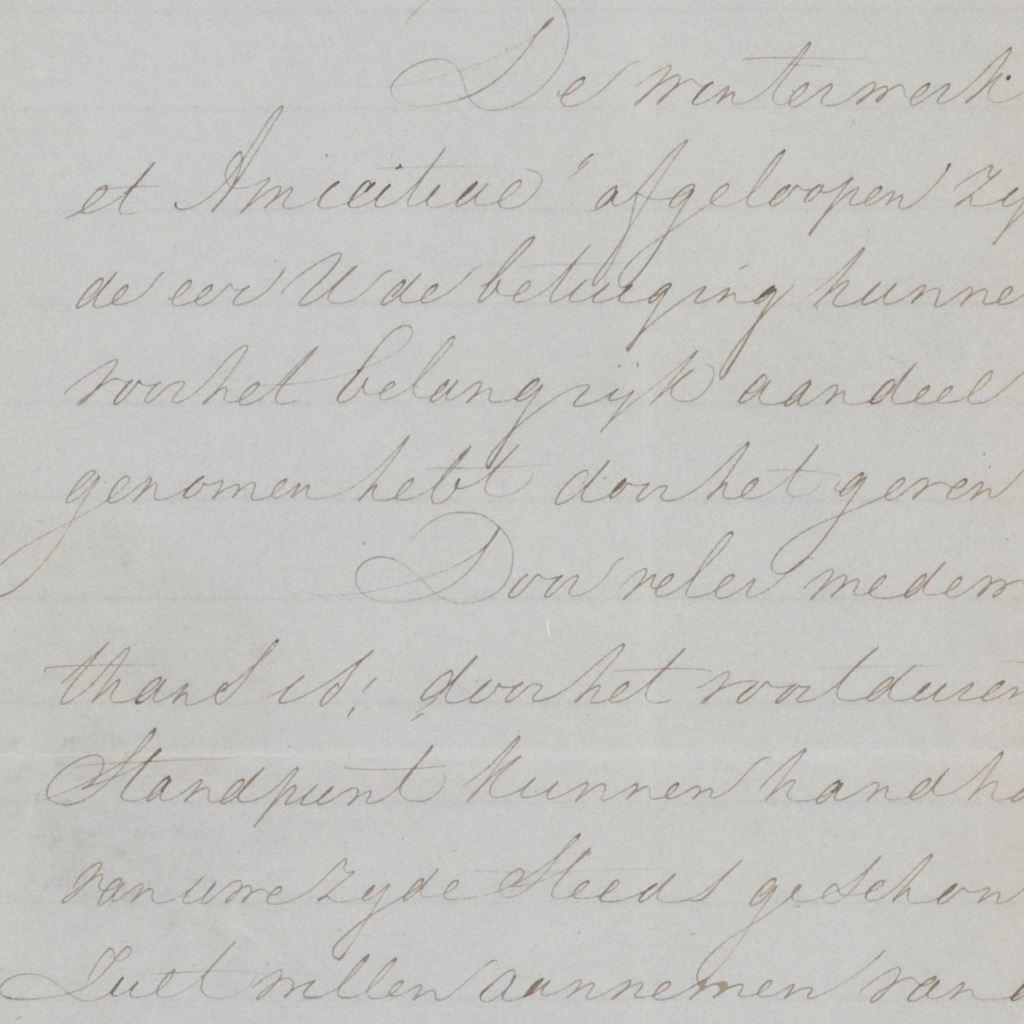 De winterwerk
et Amicitiae" afgeloopen zy
de eer U de betuiging hunne
voor het belangrijk aandeel
genomen hebt door het geven
Door veler medew
thans is; door het voortduren
Standpunt kunnen handha
van uwe zyde steeds geschon
Zult willen aannemen van d